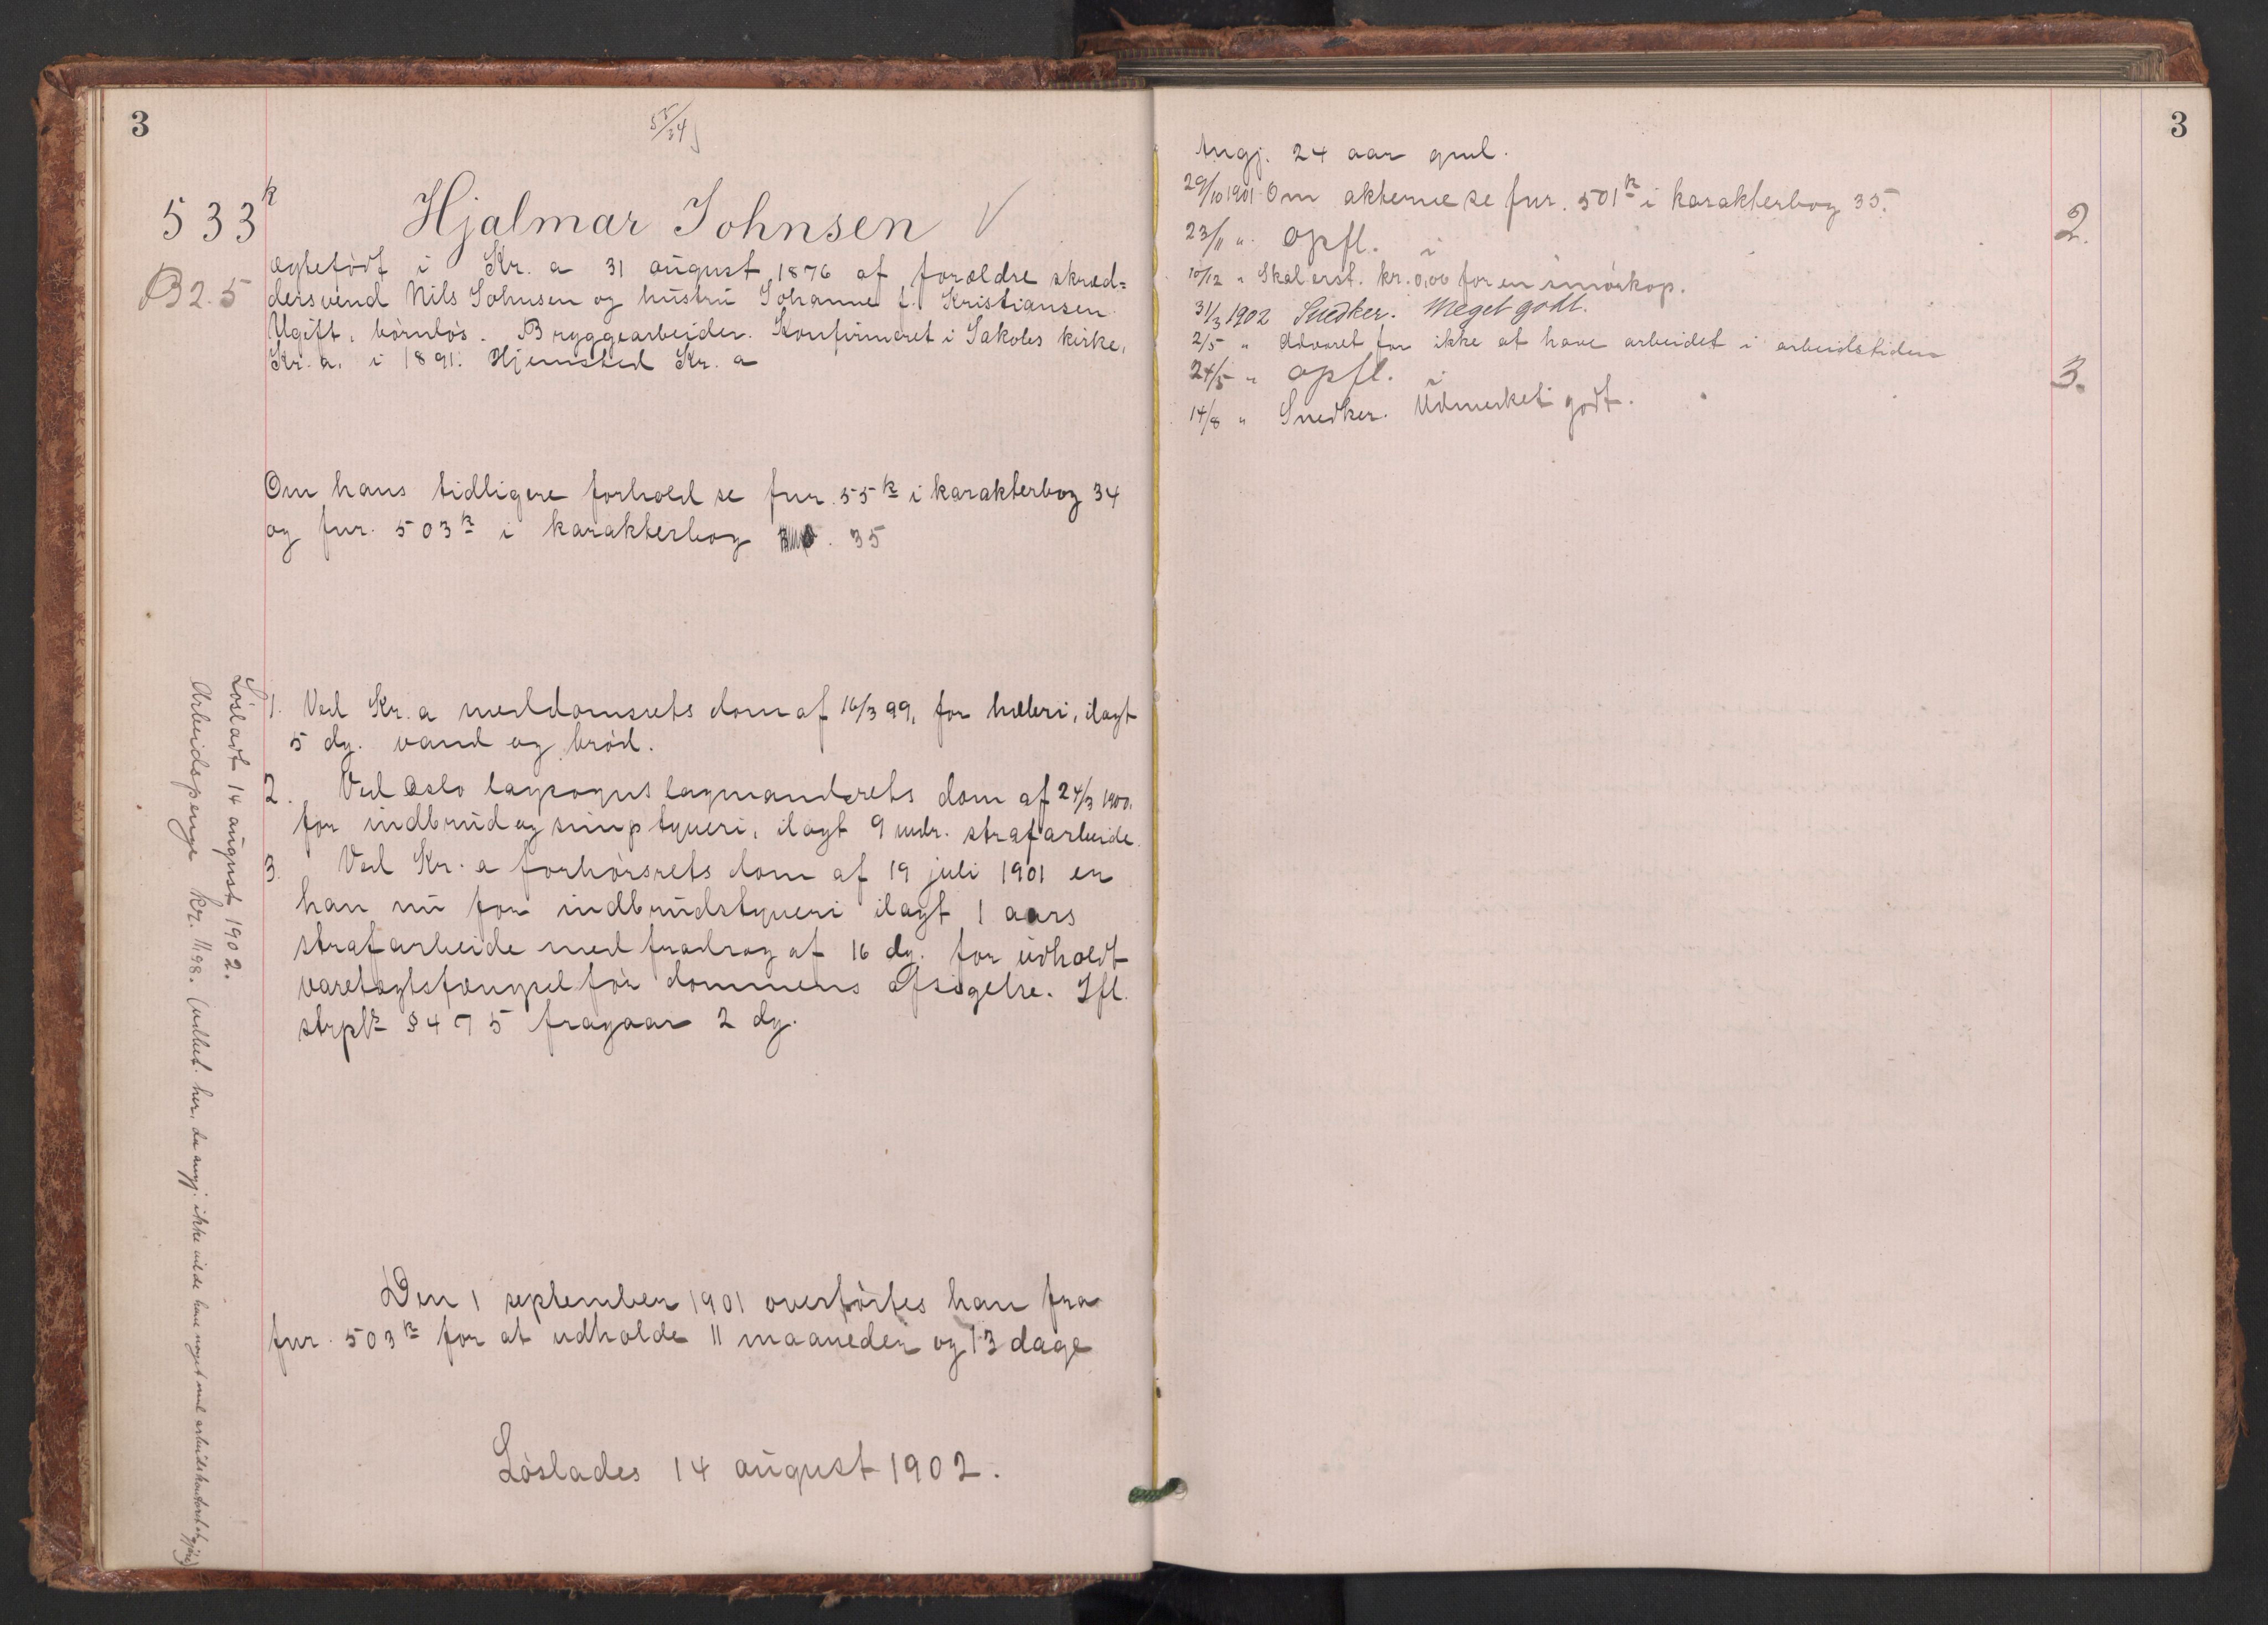 3
55/34
533k
Hjalmar Johnsen V
B2.5
ægtefødt i Kr.a 31 august 1876 af forældre skræd=
dersvend Nils Johnsen og hustru Johanne f. Kristiansen.
Ugift, børnløs. Bryggearbeider. Konfirmeret i Jakobs kirke,
Kr.a. i 1891. Hjemsted Kr.a
Om hans tidligere forhold se fnr. 55k i karakterbog 34
og fnr. 503k i karakterbog 35
1. Ved Kr.a meddomsrets dom af 16/3 99, for hæleri, ilagt
5 dg. vand og brød.
2. Ved Oslo lagsogns lagmandsrets dom af 24/3 1900,
for indbrud og simp tyveri, ilagt 9 mdr. strafarbeide.
3. Ved Kr.a forhørsrets dom af 19 juli 1901 er
han nu for indbrudstyveri ilagt 1 aars
strafarbeide med fradrag af 16 dg. for udholdt
varetægtsfængsel før dommens afsigelse. Ifl.
strpl § 475 fragaar 2 dg.
Den 1 september 1901 overførtes han fra
fnr. 503k for at udholde 11 maaneder og 13 dage
Løslades 14 august 1902.
Løsladt 14 august 1902.
Arbeidspenge kr. 11.98. (udbet. her, da angj. ikke vilde have noget med arbeidskontoret at gjøre)
3
Angj. 24 aar gml.
29/10 1901 Om akterne se fnr. 501k i karakterbog 35.
23/11 " opfl. i 2.
10/12 " Skal erst. kr. 0,06 for en smørkop.
31/3 1902 Snedker. Meget godt.
2/5 " Advaret for ikke at have arbeidet i arbeidstiden
24/5 " opfl. i 3.
14/8 " Snedker. Udmerket godt.